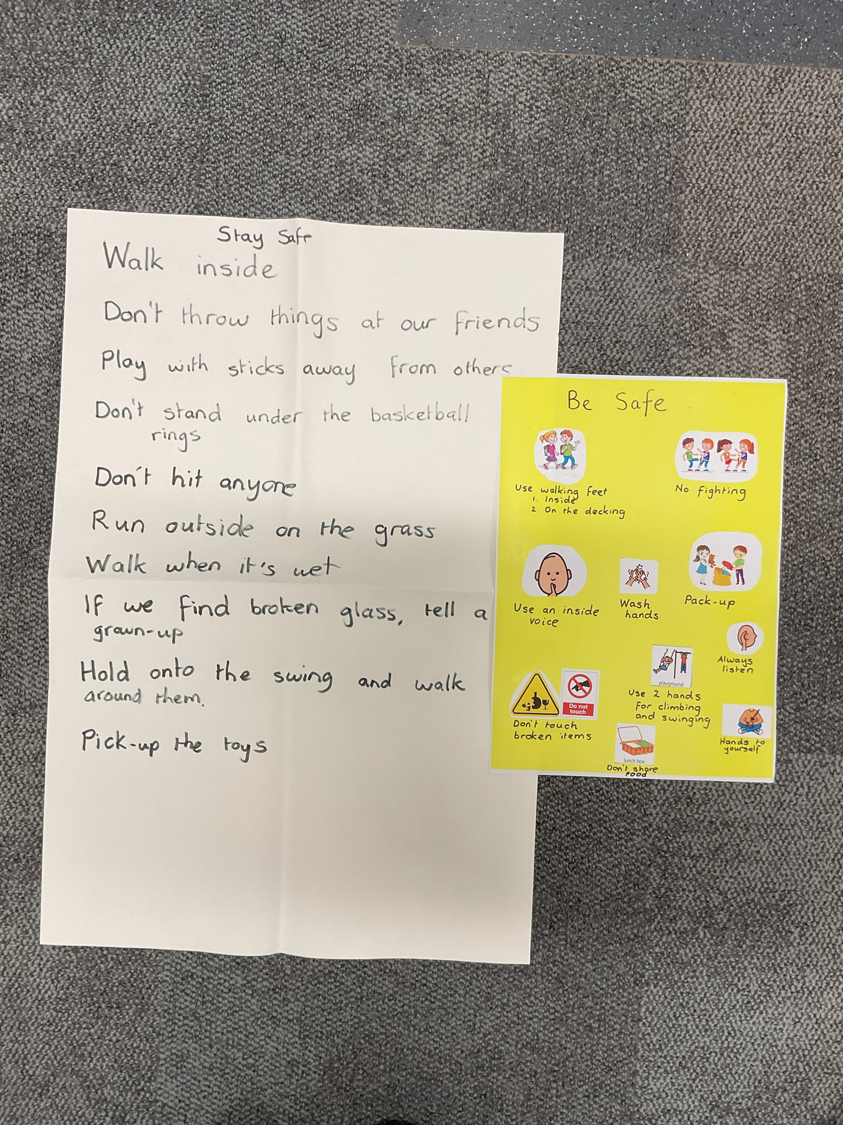 Stay Safe
Walk inside
Don't throw things at our friends
Play with sticks away from others
Don't stand under the basketball
rings
Don't hit anyone
Run outside on the grass
Walk when it's wet
If we find broken glass, tell a
grown-up
Hold onto the swing and walk
around them.
Pick-up the toys
Be Safe
Use walking feet
1. Inside
2. On the decking
No fighting
Use an inside
voice
Wash
hands
Pack-up
Always
listen
playground
Use 2 hands
for climbing
and swinging
Do not
touch
Don't touch
broken items
Hands to
yourself
lunch box
Don't share
food